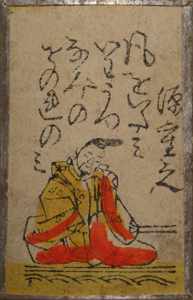 源重之
風をいたミ
いはうつ
なみの
おのれのミ